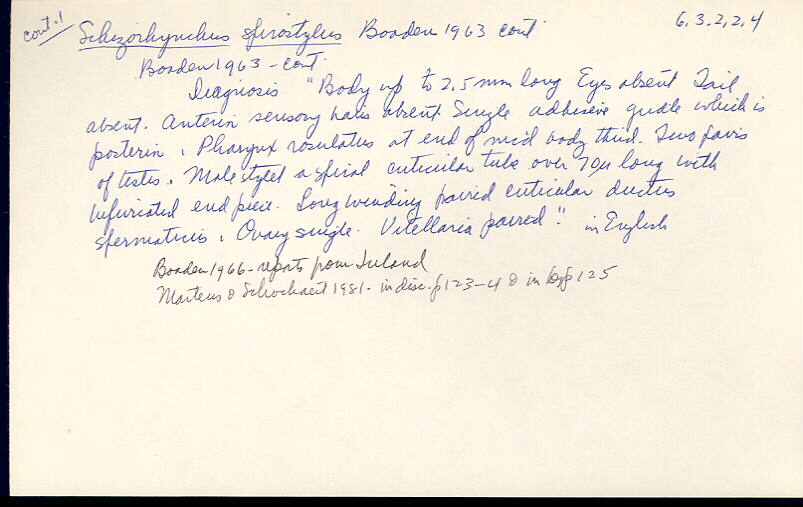 cont. 1
Schizorhynchus spirostylus Boaden 1963 cont
6.3.2.2.4
Boaden 1963 - cont.
Diagnosis "Body up to 2.5mm long Eyes absent Tail
absent. Anterior sensory hairs absent Single adhesive girdle which is
posterior. Pharynx rosulatus at end of mid body third. Two pairs
of testes. Male stylet a spiral cuticular tube over 70µ long with
bifurcated end piece. Long winding paired cuticular ductus
spermaticus. Ovary single. Vitellaria paired." in English
Boaden 1966 - reports from Ireland
Martens & Schockaert 1981 - in disc. p 123-4 & in key p 125